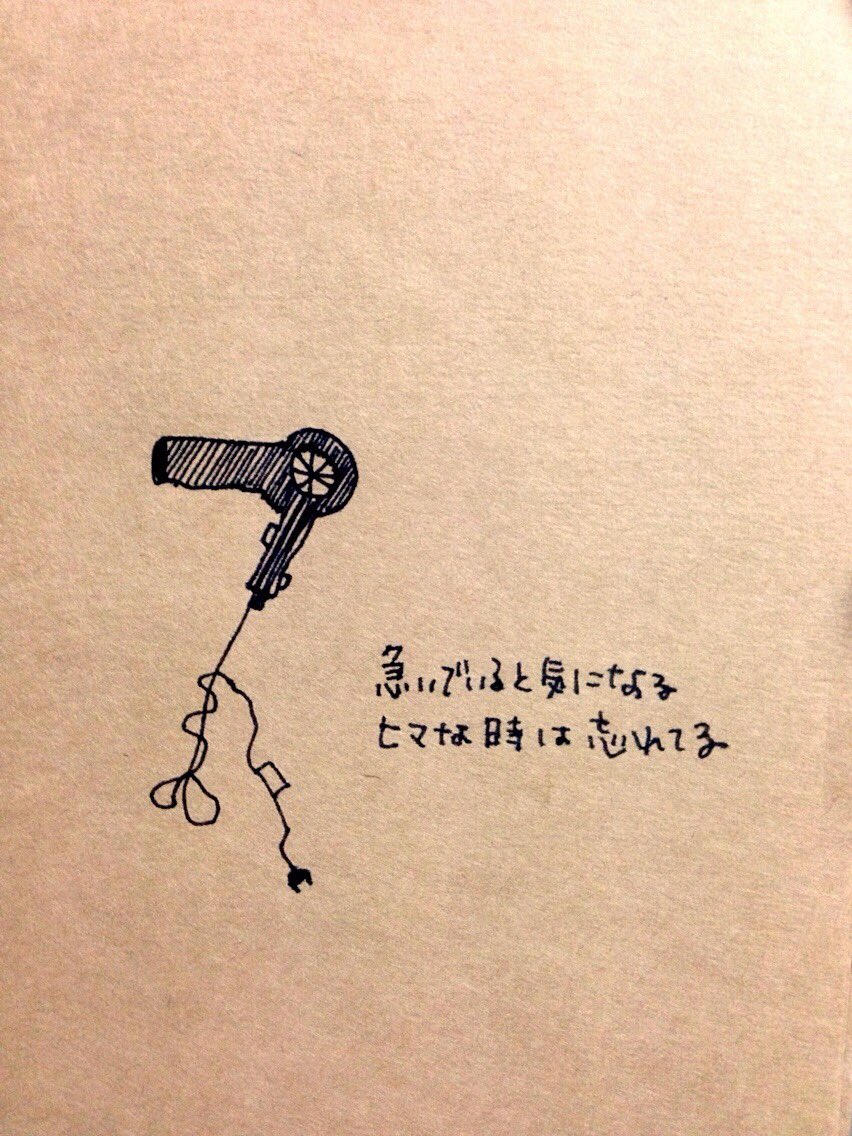 急いでいると気になる
ヒマな時は忘れてる